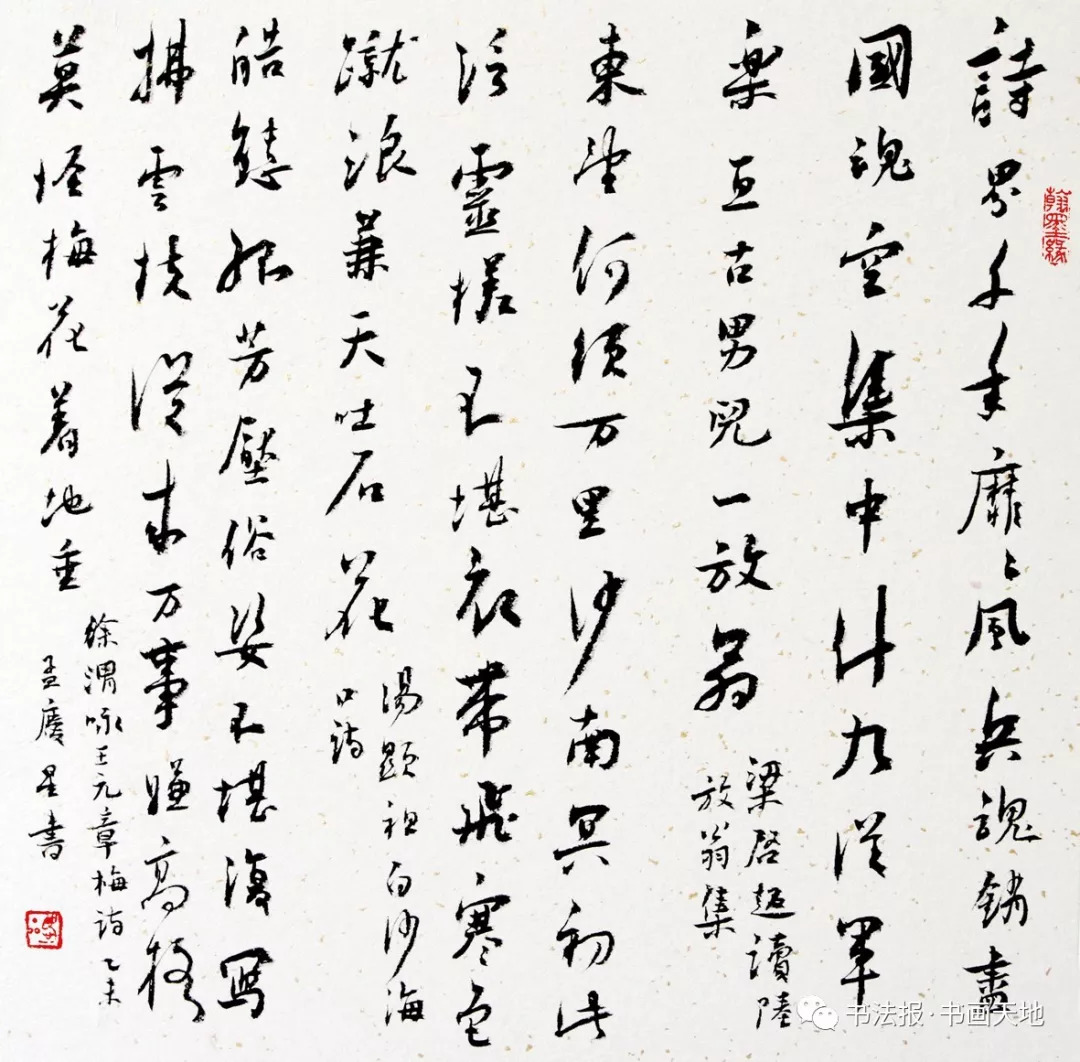 翰墨緣
詩界千年靡〻風兵魂銷盡
國魂空集中什九從軍
楽亙古男兒一放翁
梁啓超讀陸
放翁集
東望何須万里沙南冥初此
泛靈槎不堪衣帶飛寒色
蹴浪兼天吐石花
湯顯祖白沙海
口詩
皓態孤芳壓俗姿不堪復寫
拂雲枝從來万事嫌高格
莫怪梅花着地垂
徐渭咏王元章梅詩 乙未
孟慶星書
书法报·书画天地